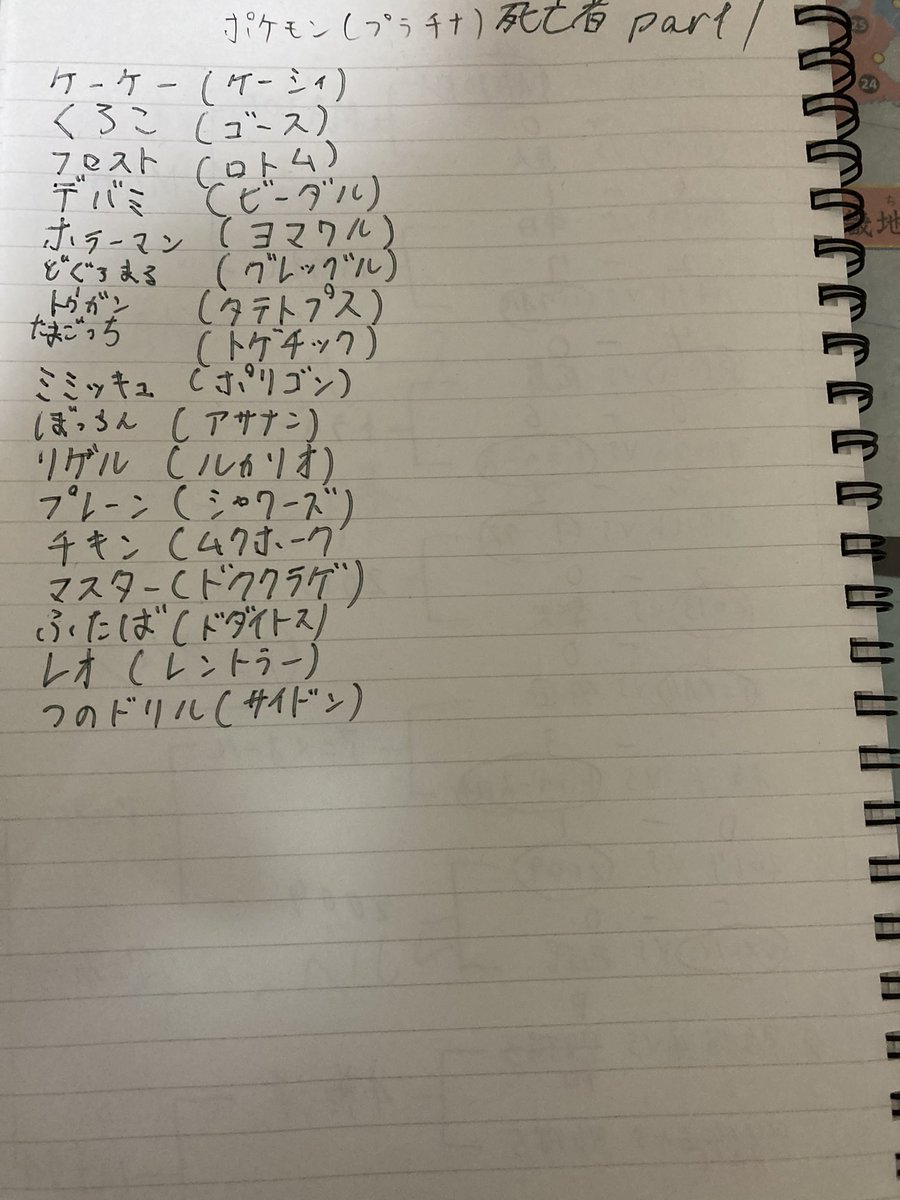 ポケモン(プラチナ)死亡者 part1
ケーケー(ケーシィ)
くろこ(ゴース)
フロスト(ロトム)
デバミ(ビーダル)
ホラーマン(ヨマワル)
どくろまる(グレッグル)
トゲガン(タテトプス)
たまごっち(トゲチック)
ミミッキュ(ポリゴン)
ぼっちん(アサナン)
リゲル(ルカリオ)
プレーン(シャワーズ)
チキン(ムクホーク
マスター(ドククラゲ)
ふたば(ドダイトス)
レオ(レントラー)
つのドリル(サイドン)
25
24
ち
地